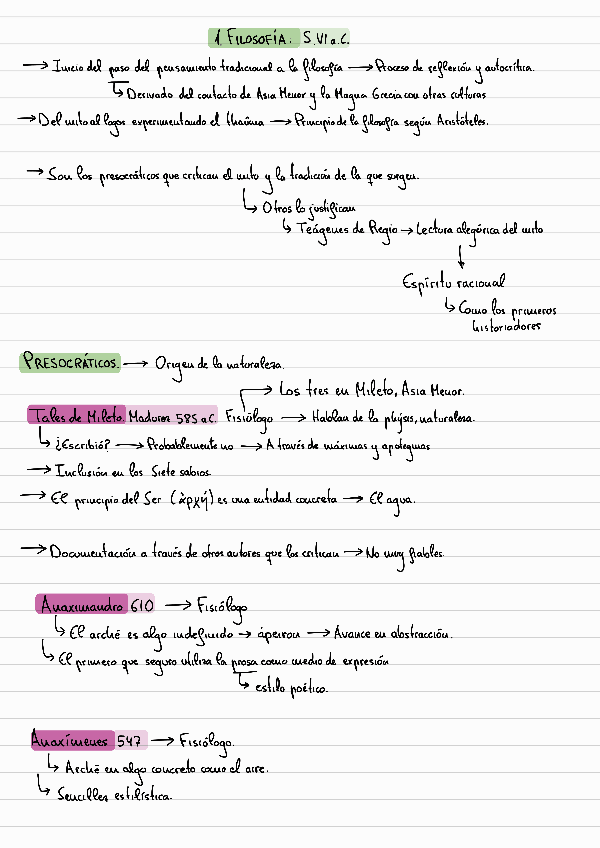 1. FILOSOFÍA. S.VI a.C.
→ Inicio del paso del pensamiento tradicional a la filosofía → Proceso de reflexión y autocrítica.
↳ Derivado del contacto de Asia Menor y la Magna Grecia con otras culturas
→ Del mito al logos experimentando el thaûma → Principio de la filosofía según Aristóteles.
→ Son los presocráticos que critican el mito y la tradición de la que surgen.
↳ Otros lo justifican
↳ Teágenes de Regio → Lectura alegórica del mito
↓
Espíritu racional
↳ Como los primeros
historiadores
PRESOCRÁTICOS. → Origen de la naturaleza.
→ Los tres en Mileto, Asia Menor.
Tales de Mileto. Madurez 585 a.C. Fisiólogo → Hablan de la phýsis, naturaleza.
↳ ¿Escribió? → Probablemente no → A través de máximas y apotegmas
→ Inclusión en los Siete sabios.
→ El principio del Ser (ἀρχή) es una entidad concreta → El agua.
→ Documentación a través de otros autores que los critican → No muy fiables.
Anaximandro 610 → Fisiólogo
↳ El arché es algo indefinido → ápeiron → Avance en abstracción.
↳ El primero que seguro utiliza la prosa como medio de expresión
↳ estilo poético.
Anaxímenes 547 → Fisiólogo.
↳ Arché en algo concreto como el aire.
↳ Sencillez estilística.